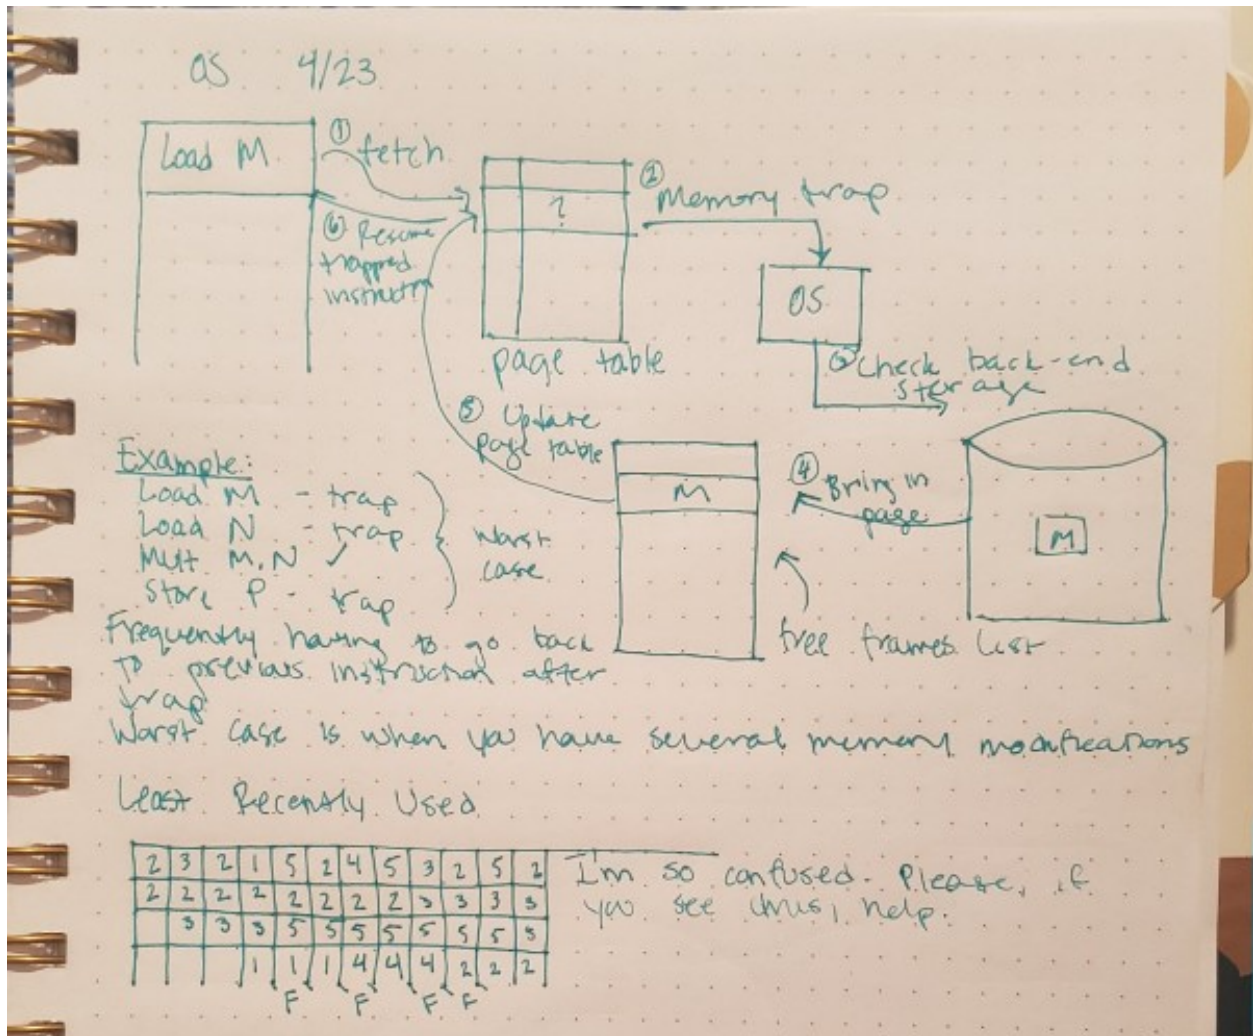 OS 4/23
Load M
① fetch
?
② Memory trap
⑥ Resume
trapped
instructn
OS
page table
③ Check back-end
storage
⑤ Update
page table
M
④ Bring in
page
M
free frames list
Example:
Load M - trap
Load N - trap
Mult M,N ✓
Store P - trap
Worst
case
Frequently having to go back
to previous instruction after
trap
Worst case is when you have several memory modifications
Least Recently Used
2 3 2 1 5 2 4 5 3 2 5 2
2 2 2 2 2 2 2 2 3 3 3 3
3 3 3 5 5 5 5 5 5 5 5
1 1 1 4 4 4 2 2 2
F F F F
I'm so confused. Please, if
you see this, help.